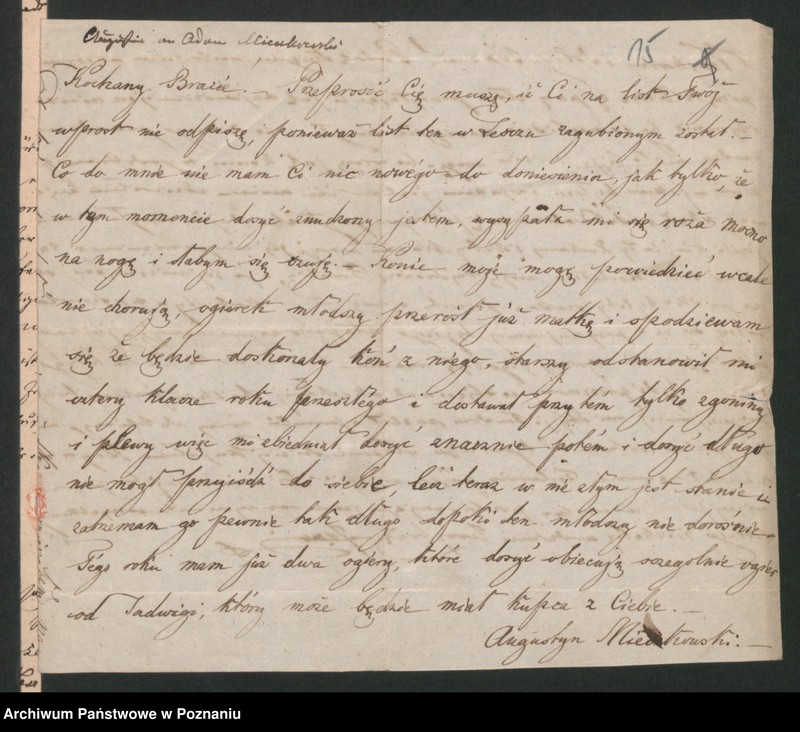 Augustin an Adam Mieczkowski
15
Kochany Bracie! — Przeprosić Cię muszę, iż Ci na list Twój
wprost nie odpiszę, ponieważ list ten w Leszu zagubionym został. —
Co do mnie nie mam Ci nic nowego do doniesienia, jak tylko, że
w tym momencie dosyć znudzony jestem, wysypała mi się róża mocno
na nogę i słabym się czuję. — Konie moje mogę powiedzieć wcale
nie chorują, ogierek młodszy przerósł już matkę i spodziewam
się że będzie doskonały koń z niego, starszy odstanowił mi
cztery klacze roku przeszłego i dostawał przytém tylko zgoniny
i plewy więc mi zbiedniał dosyć znacznie potém i dosyć długo
nie mógł przyiśdź do siebie, lecz teraz w nie złym jest stanie i
zatrzymam go pewnie tak długo dopóki ten młodszy nie dorośnie —
Tego roku mam już dwa ogiery, które dosyć obiecują szczególnie
od Jadwigi, który może będzie miał kupca z Ciebie. —
Augustyn Mieczkowski. —
Archiwum Państwowe w Poznaniu